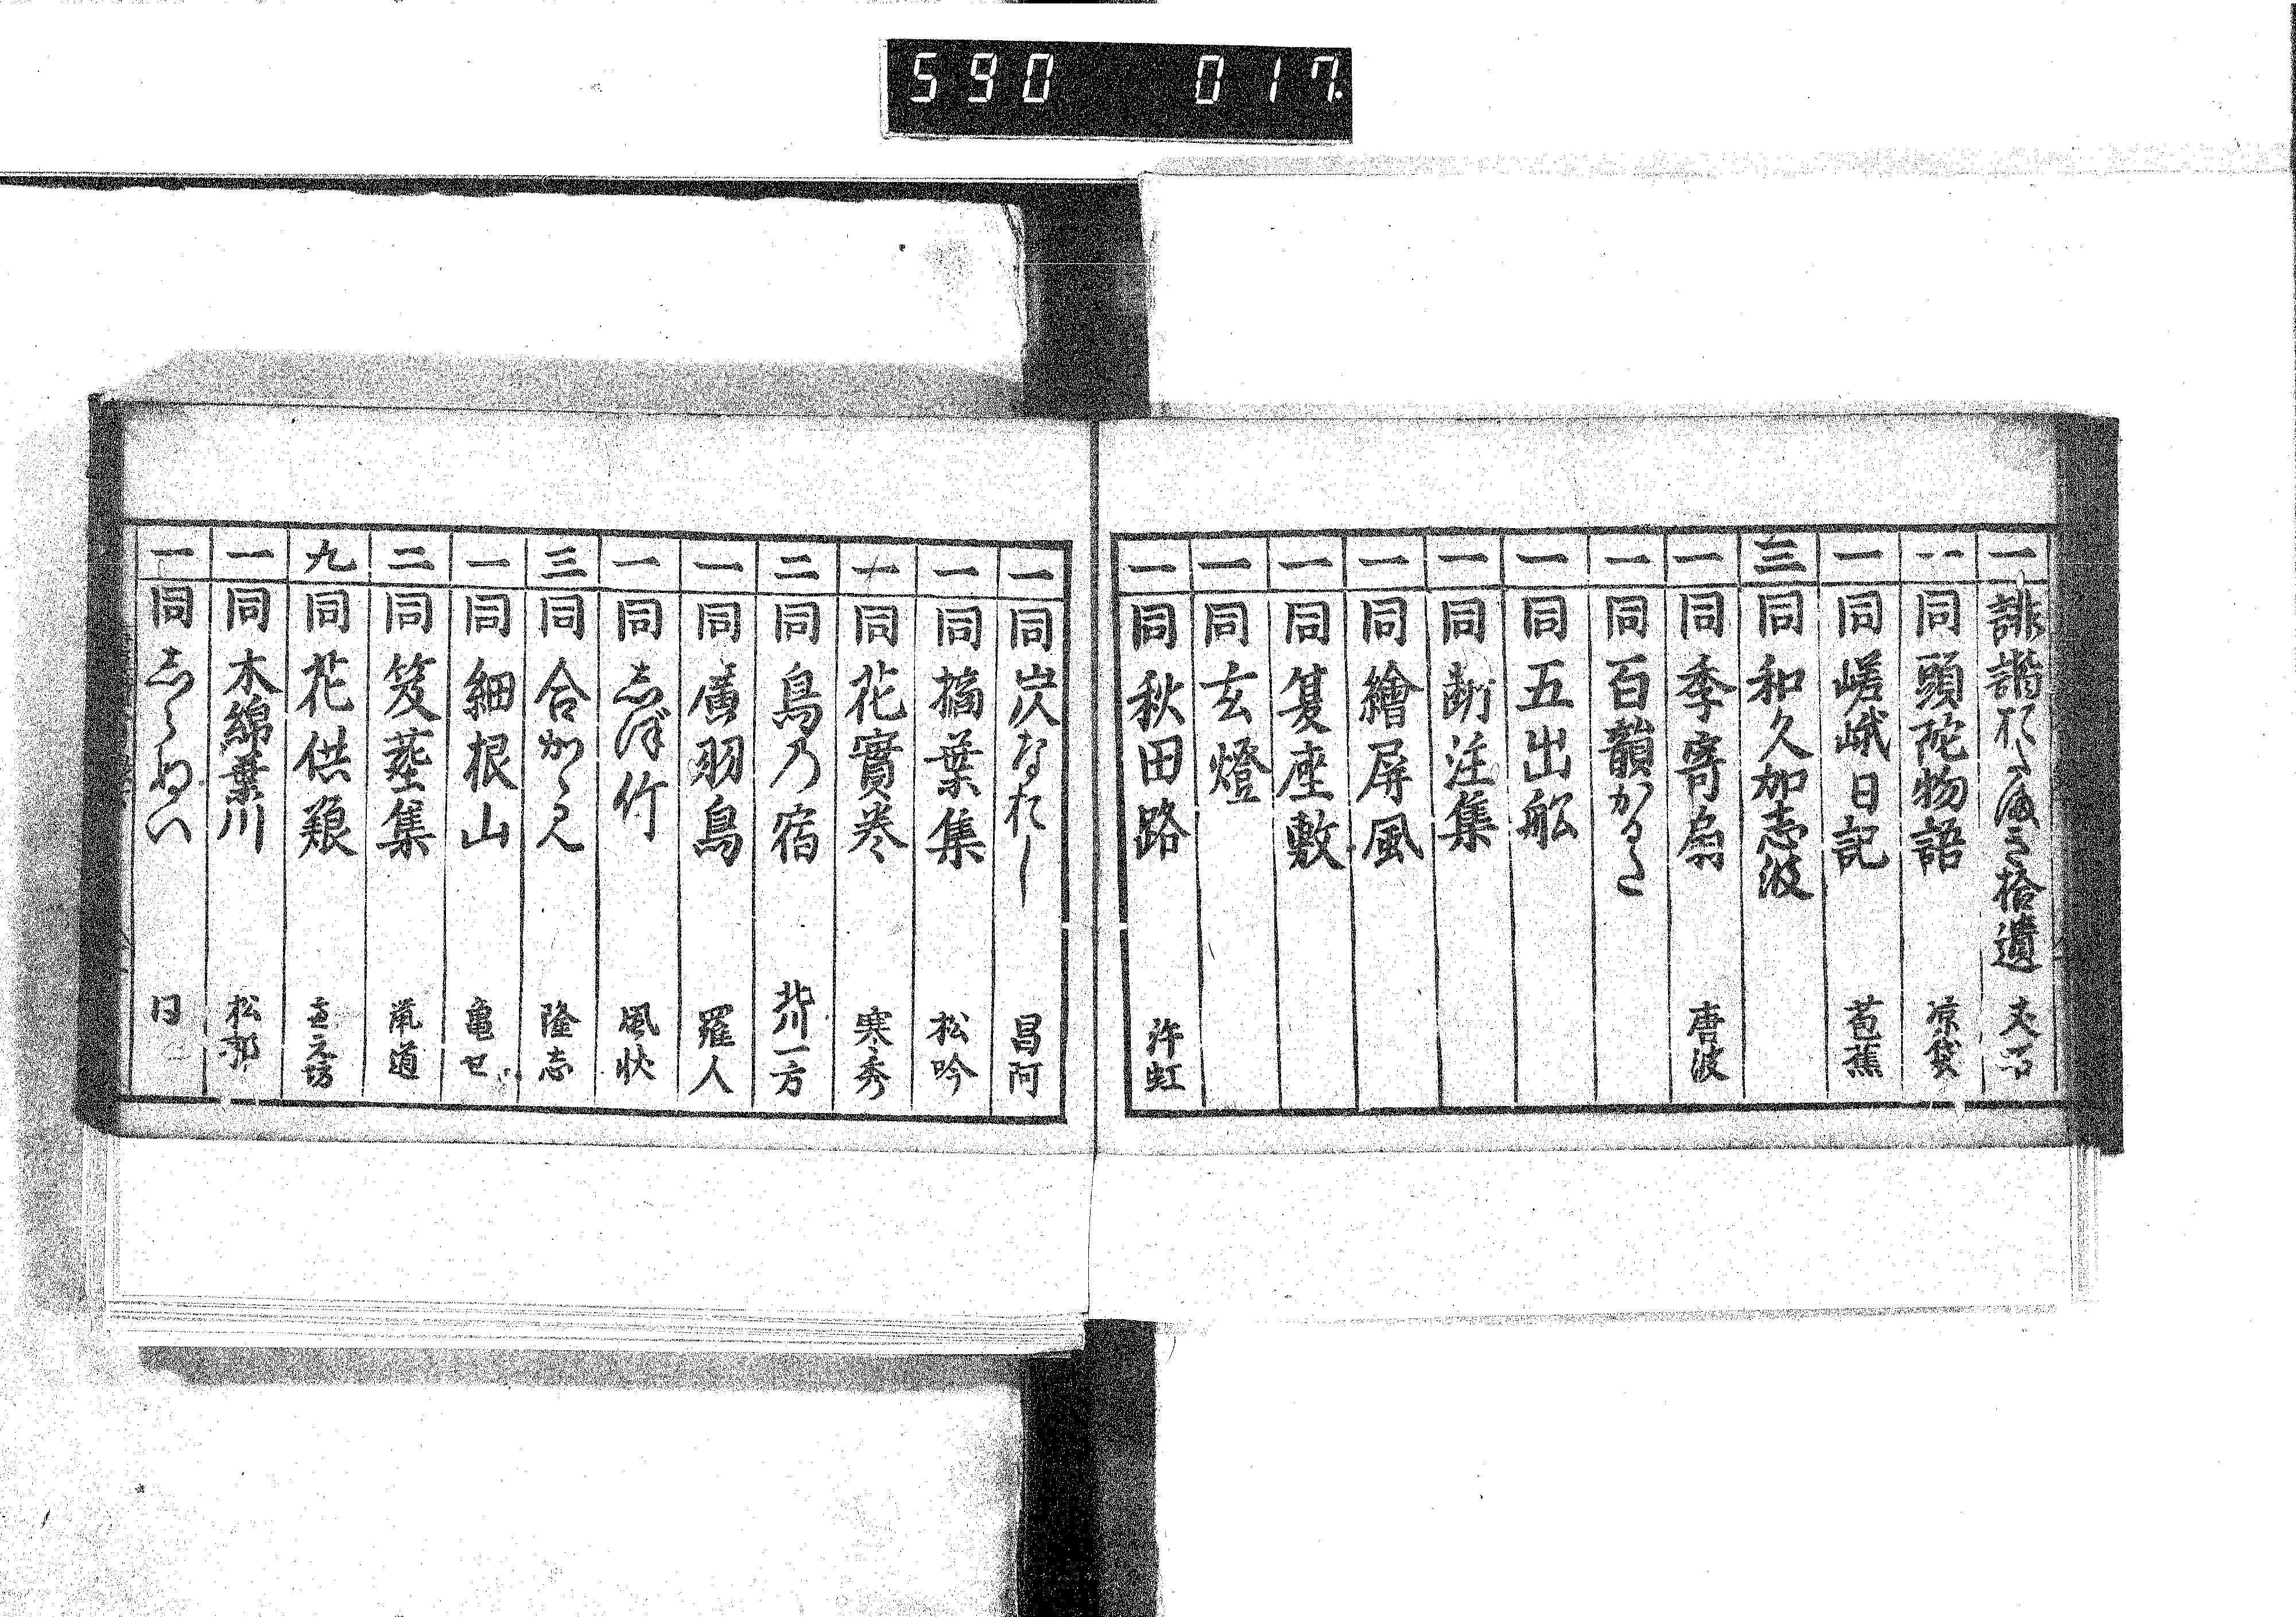 590 017.
一 誹諧 拾遺
一 同 頭陀物語 涼袋
一 同 嵯峨日記 芭蕉
三 同 和久加志波
一 同 季寄扇 唐波
一 同 百韻かるた
一 同 五出舩
一 同 注集
一 同 繪屏風
一 同 座敷
一 同 玄燈
一 同 秋田路 許虹
一 同 炭なれし 昌阿
一 同 摘葉集 松吟
一 同 花實巻 寒秀
二 同 鳥乃宿 北川一方
一 同 廣羽鳥 羅人
一 同 志ほ竹 風状
三 同 合かゝ見 隆志
一 同 細根山 亀七
二 同 笈塵集 道
九 同 花供養 元坊
一 同 木綿葉川 松郭
一 同 志らぬい 同